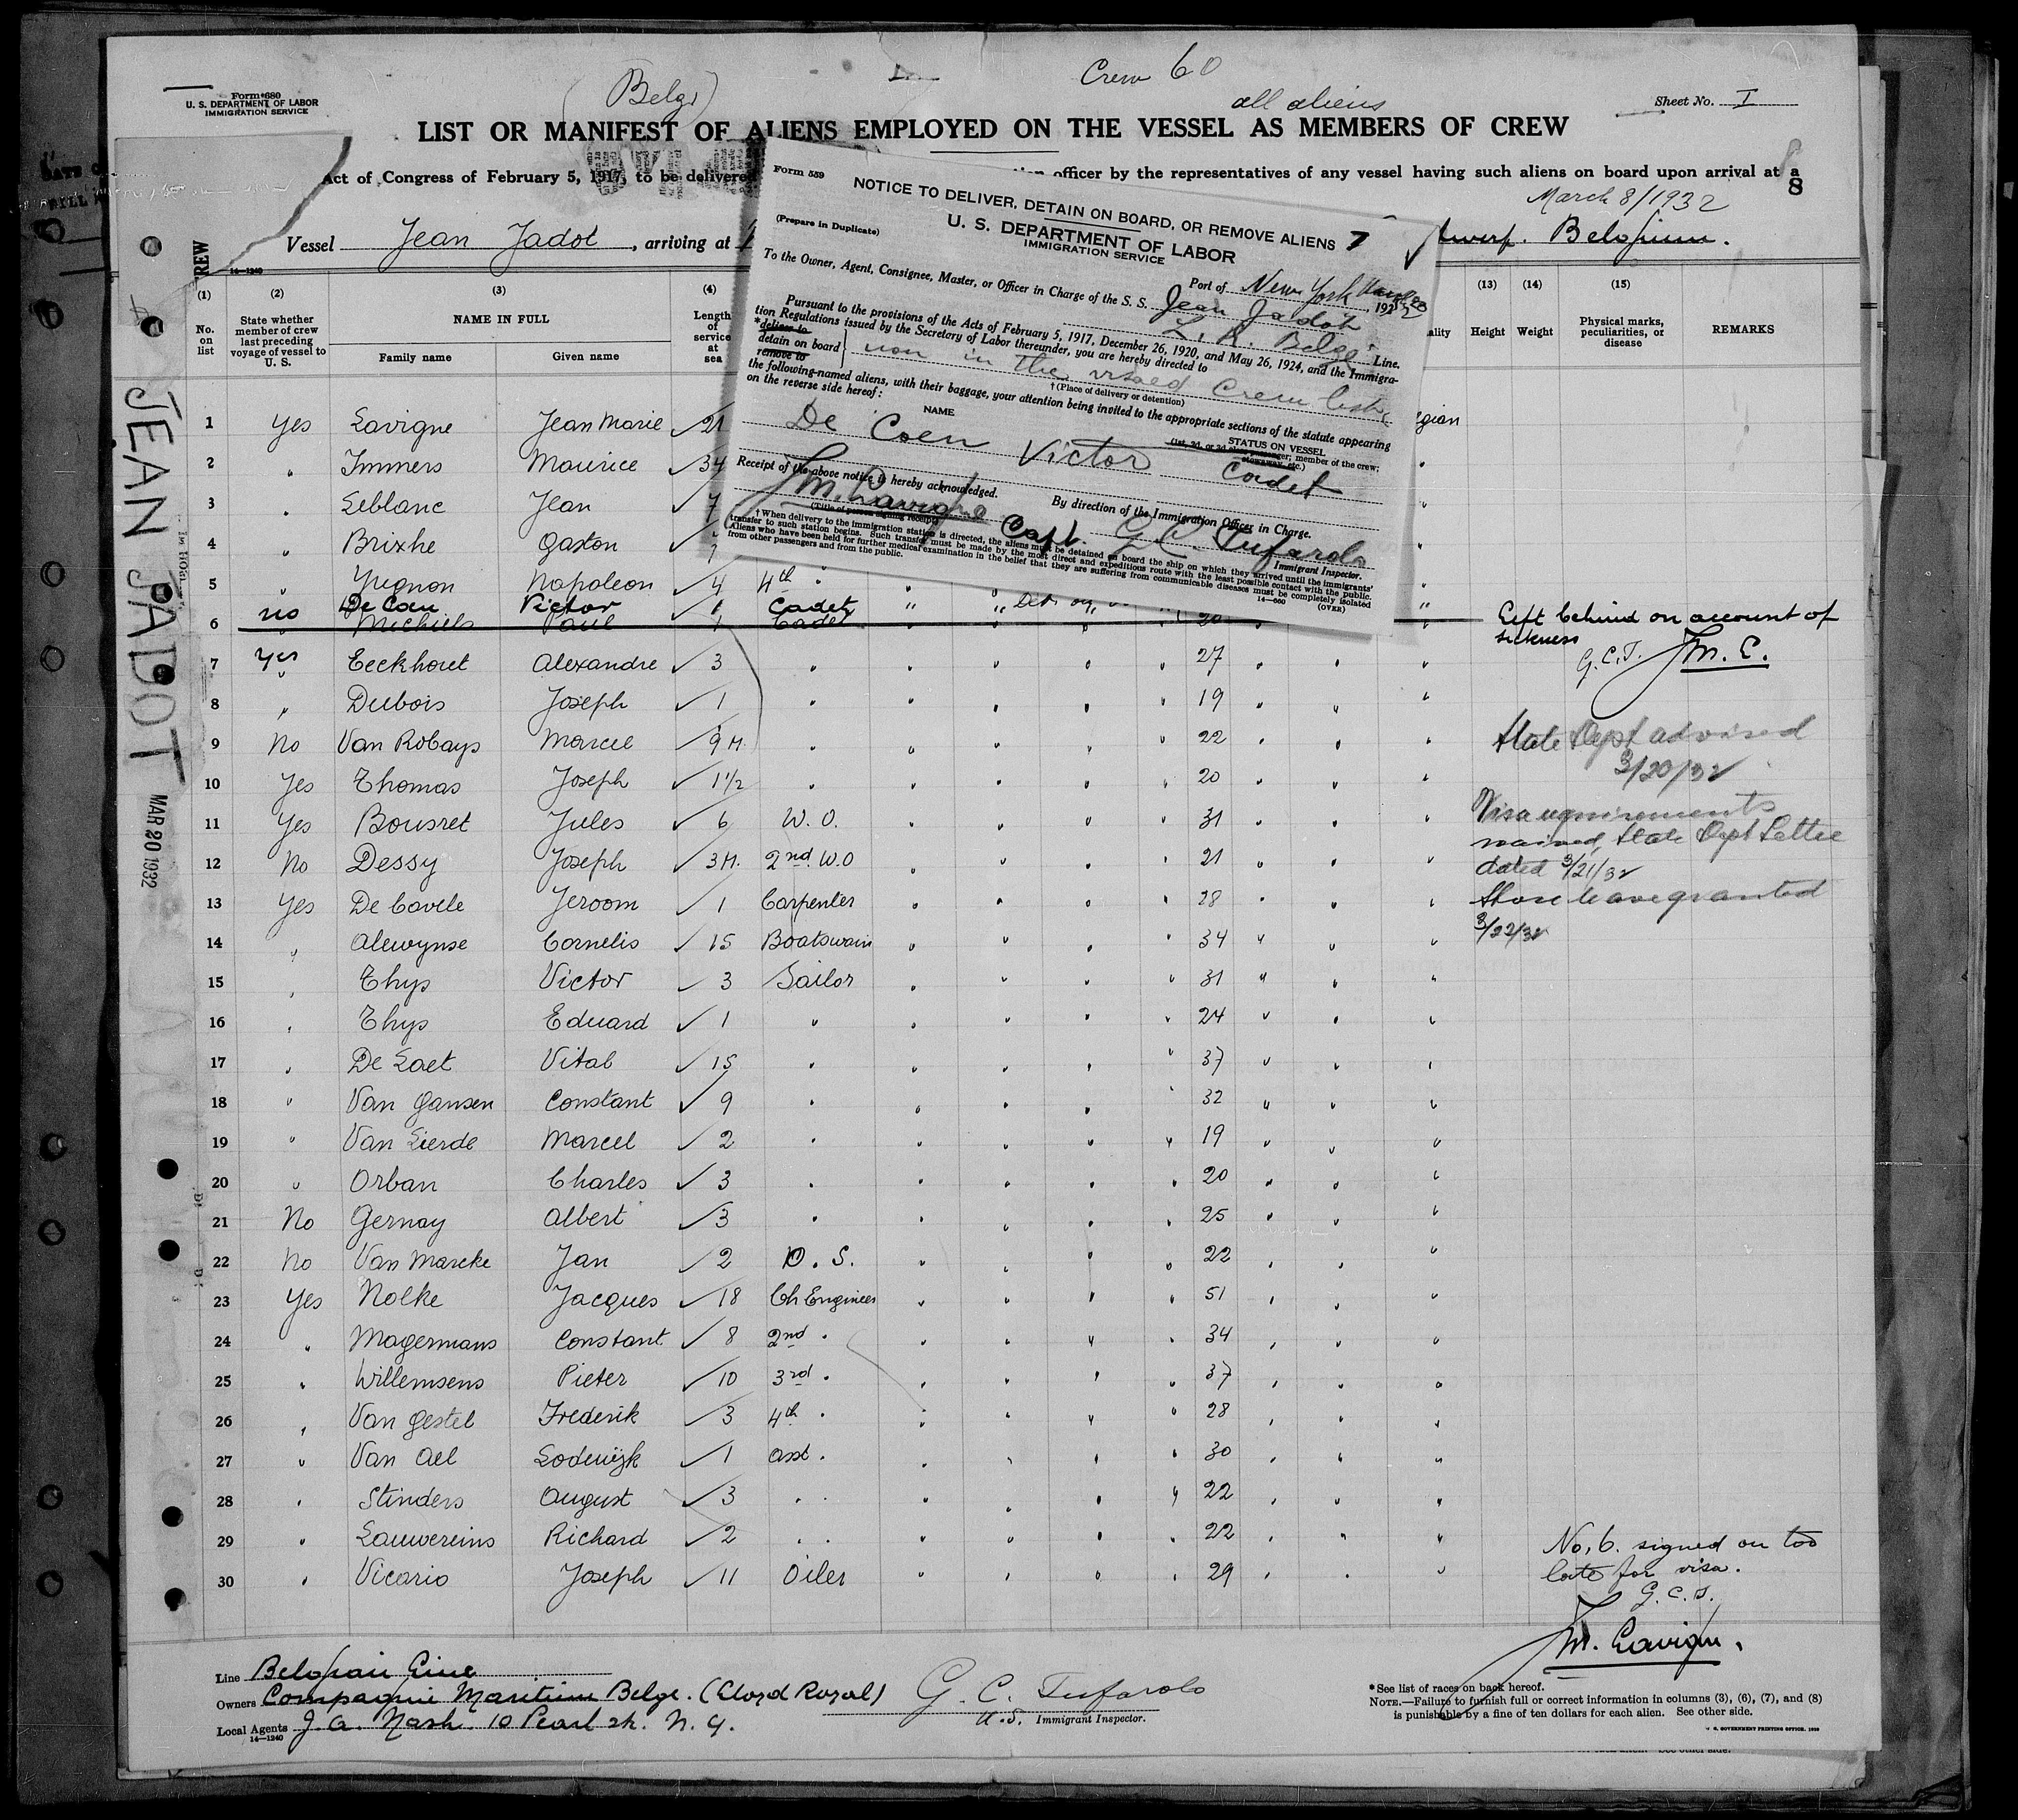 Crew 60
(Belg.)
all aliens
Form 680
U. S. DEPARTMENT OF LABOR
IMMIGRATION SERVICE
Sheet No. I
LIST OR MANIFEST OF ALIENS EMPLOYED ON THE VESSEL AS MEMBERS OF CREW
Act of Congress of February 5, 1917, to be delivered
officer by the representatives of any vessel having such aliens on board upon arrival at a
8
March 8/1932
Vessel Jean Jadot, arriving at
twerp. Belgium.
Form 559
NOTICE TO DELIVER, DETAIN ON BOARD, OR REMOVE ALIENS 7
(Prepare in Duplicate)
U. S. DEPARTMENT OF LABOR
IMMIGRATION SERVICE
Port of New York
To the Owner, Agent, Consignee, Master, or Officer in Charge of the S. S. Jean Jadot
L. R. Belge Line.
Pursuant to the provisions of the Acts of February 5, 1917, December 26, 1920, and May 26, 1924, and the Immigra-
tion Regulations issued by the Secretary of Labor thereunder, you are hereby directed to
*deliver to
detain on board
remove to
non in the visaed Crew list
†(Place of delivery or detention)
the following-named aliens, with their baggage, your attention being invited to the appropriate sections of the statute appearing
on the reverse side hereof:
NAME
STATUS ON VESSEL
(1st, 2d, or 3d class passenger; member of the crew;
stowaway, etc.)
De Coen Victor Cadet
Receipt of the above notice is hereby acknowledged.
By direction of the Immigration Officer in Charge.
J M. Lavigne Capt.
(Title of person signing receipt)
G. C. Tufarolo
Immigrant Inspector.
†When delivery to the immigration station is directed, the aliens must be detained on board the ship on which they arrived until the immigrants'
transfer to such station begins. Such transfer must be made by the most direct and expeditious route with the least possible contact with the public.
Aliens who have been held for further medical examination in the belief that they are suffering from communicable diseases must be completely isolated
from other passengers and from the public.
14—660
(OVER)
CREW
14—1240
(1) (2) (3) (4) (13) (14) (15)
No. on list
State whether member of crew last preceding voyage of vessel to U. S.
NAME IN FULL
Family name
Given name
Length of service at sea
ality
Height
Weight
Physical marks, peculiarities, or disease
REMARKS
JEAN JADOT
MAR 20 1932
1 Yes Lavigne Jean Marie ✓ 21 gian
2 " Immers Maurice ✓ 34 "
3 " Leblanc Jean ✓ 7 "
4 " Brixhe Gaston ✓ "
5 " Yugnon Napoleon ✓ 4 4th " " "
no De Coen Victor ✓ Cadet " " "
6 " Michiels Paul 1 Cadet " " 20 " Left behind on account of
sickness
G.C.T. J M. L.
7 Yes Eeckhout Alexandre ✓ 3 " " " " " 27 " " "
8 " Dubois Joseph ✓ 1 " " " " " 19 " " "
9 No Van Robays Marcel ✓ 9 M. " " " " " 22 " " " State Dept advised
3/20/32
10 Yes Thomas Joseph ✓ 1½ " " " " " 20 " " "
11 Yes Bousret Jules ✓ 6 W. O. " " " " 31 " " " Visa requirements
waived, State Dept Letter
12 No Dessy Joseph ✓ 3 M. 2nd W.O " " " " 21 " " " dated 3/21/32
13 Yes De Cavele Jeroom ✓ 1 Carpenter " " " " 28 " " " Shore leave granted
3/22/32
14 " Alewynse Cornelis ✓ 15 Boatswain " " " " 34 " " "
15 " Thys Victor ✓ 3 Sailor " " " " 31 " " "
16 " Thys Eduard ✓ 1 " " " " " 24 " " "
17 " De Laet Vital ✓ 15 " " " " " 37 " " "
18 " Van Gansen Constant ✓ 9 " " " " " 32 " " "
19 " Van Lierde Marcel ✓ 2 " " " " " 19 " " "
20 " Orban Charles ✓ 3 " " " " " 20 " " "
21 No Gernay Albert ✓ 3 " " " " " 25 " " "
22 No Van Marcke Jan ✓ 2 O. S. " " " " 22 " " "
23 Yes Nolke Jacques ✓ 18 Ch Engineer " " " " 51 " " "
24 " Magermans Constant ✓ 8 2nd " " " " " 34 " " "
25 " Willemsens Pieter ✓ 10 3rd " " " " " 37 " " "
26 " Van Gestel Frederik ✓ 3 4th " " " " " 28 " " "
27 " Van Ael Lodewijk ✓ 1 Asst " " " " " 30 " " "
28 " Stinders August ✓ 3 " " " " " " 22 " " "
29 " Lauwereins Richard ✓ 2 " " " " " " 22 " " "
30 " Vicario Joseph ✓ 11 Oiler " " " " 29 " " "
No. 6. signed on too
late for visa.
G. C. T.
J M. Lavigne.
Line Belgian Line
Owners Compagnie Maritime Belge. (Lloyd Royal)
Local Agents J. A. Nash. 10 Pearl St. N. Y.
14—1240
G. C. Tufarolo
U.S. Immigrant Inspector.
*See list of races on back hereof.
NOTE.—Failure to furnish full or correct information in columns (3), (6), (7), and (8)
is punishable by a fine of ten dollars for each alien. See other side.